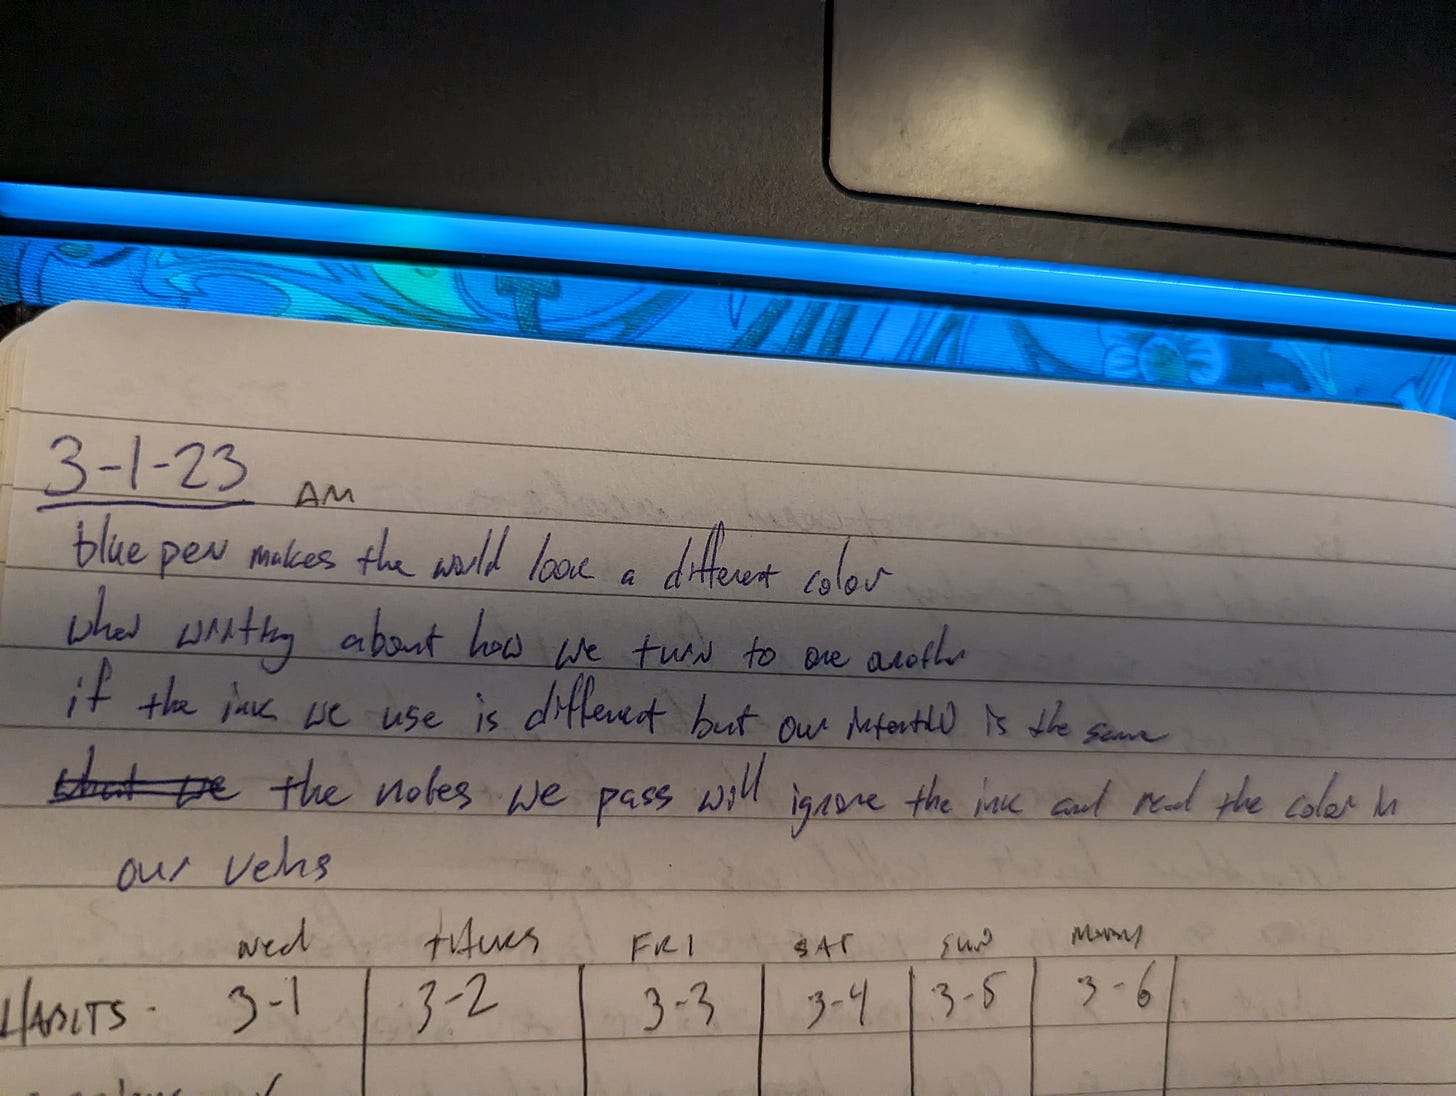 3-1-23 AM
blue pen makes the world look a different color
when writing about how we turn to one another
if the ink we use is different but our intention is the same
that we the notes we pass will ignore the ink and read the color in
our veins
wed thurs FRI SAT SUN Monday
HABITS - 3-1 3-2 3-3 3-4 3-5 3-6